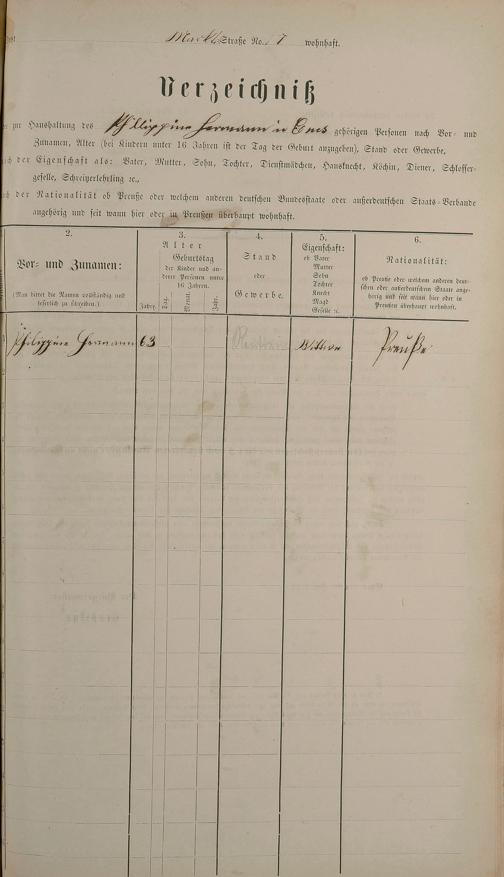 Markt Straße No. 7 wohnhaft.
Verzeichniß
zur Haushaltung des Philippine Hermann in Ems gehörigen Personen nach Vor- und
Zunamen, Alter (bei Kindern unter 16 Jahren ist der Tag der Geburt anzugeben), Stand oder Gewerbe,
der Eigenschaft als: Vater, Mutter, Sohn, Tochter, Dienstmädchen, Hausknecht, Köchin, Diener, Schlosser-
geselle, Schreinerlehrling ꝛc.,
der Nationalität ob Preuße oder welchem anderen deutschen Bundesstaate oder außerdeutschen Staats-Verbande
angehörig und seit wann hier oder in Preußen überhaupt wohnhaft.
2.
Vor- und Zunamen:
(Man bittet die Namen vollständig und
leserlich zu schreiben.)
3.
Alter
Geburtstag
der Kinder und an-
derer Personen unter
16 Jahren.
Jahre. Tag. Monat. Jahr.
4.
Stand
oder
Gewerbe.
5.
Eigenschaft:
ob Vater
Mutter
Sohn
Tochter
Knecht
Magd
Geselle ꝛc.
6.
Nationalität:
ob Preuße oder welchem anderen deut-
schen oder außerdeutschen Staate ange-
hörig und seit wann hier oder in
Preußen überhaupt wohnhaft.
Philippine Hermann 63 Rentnerin Wittwe Preuße